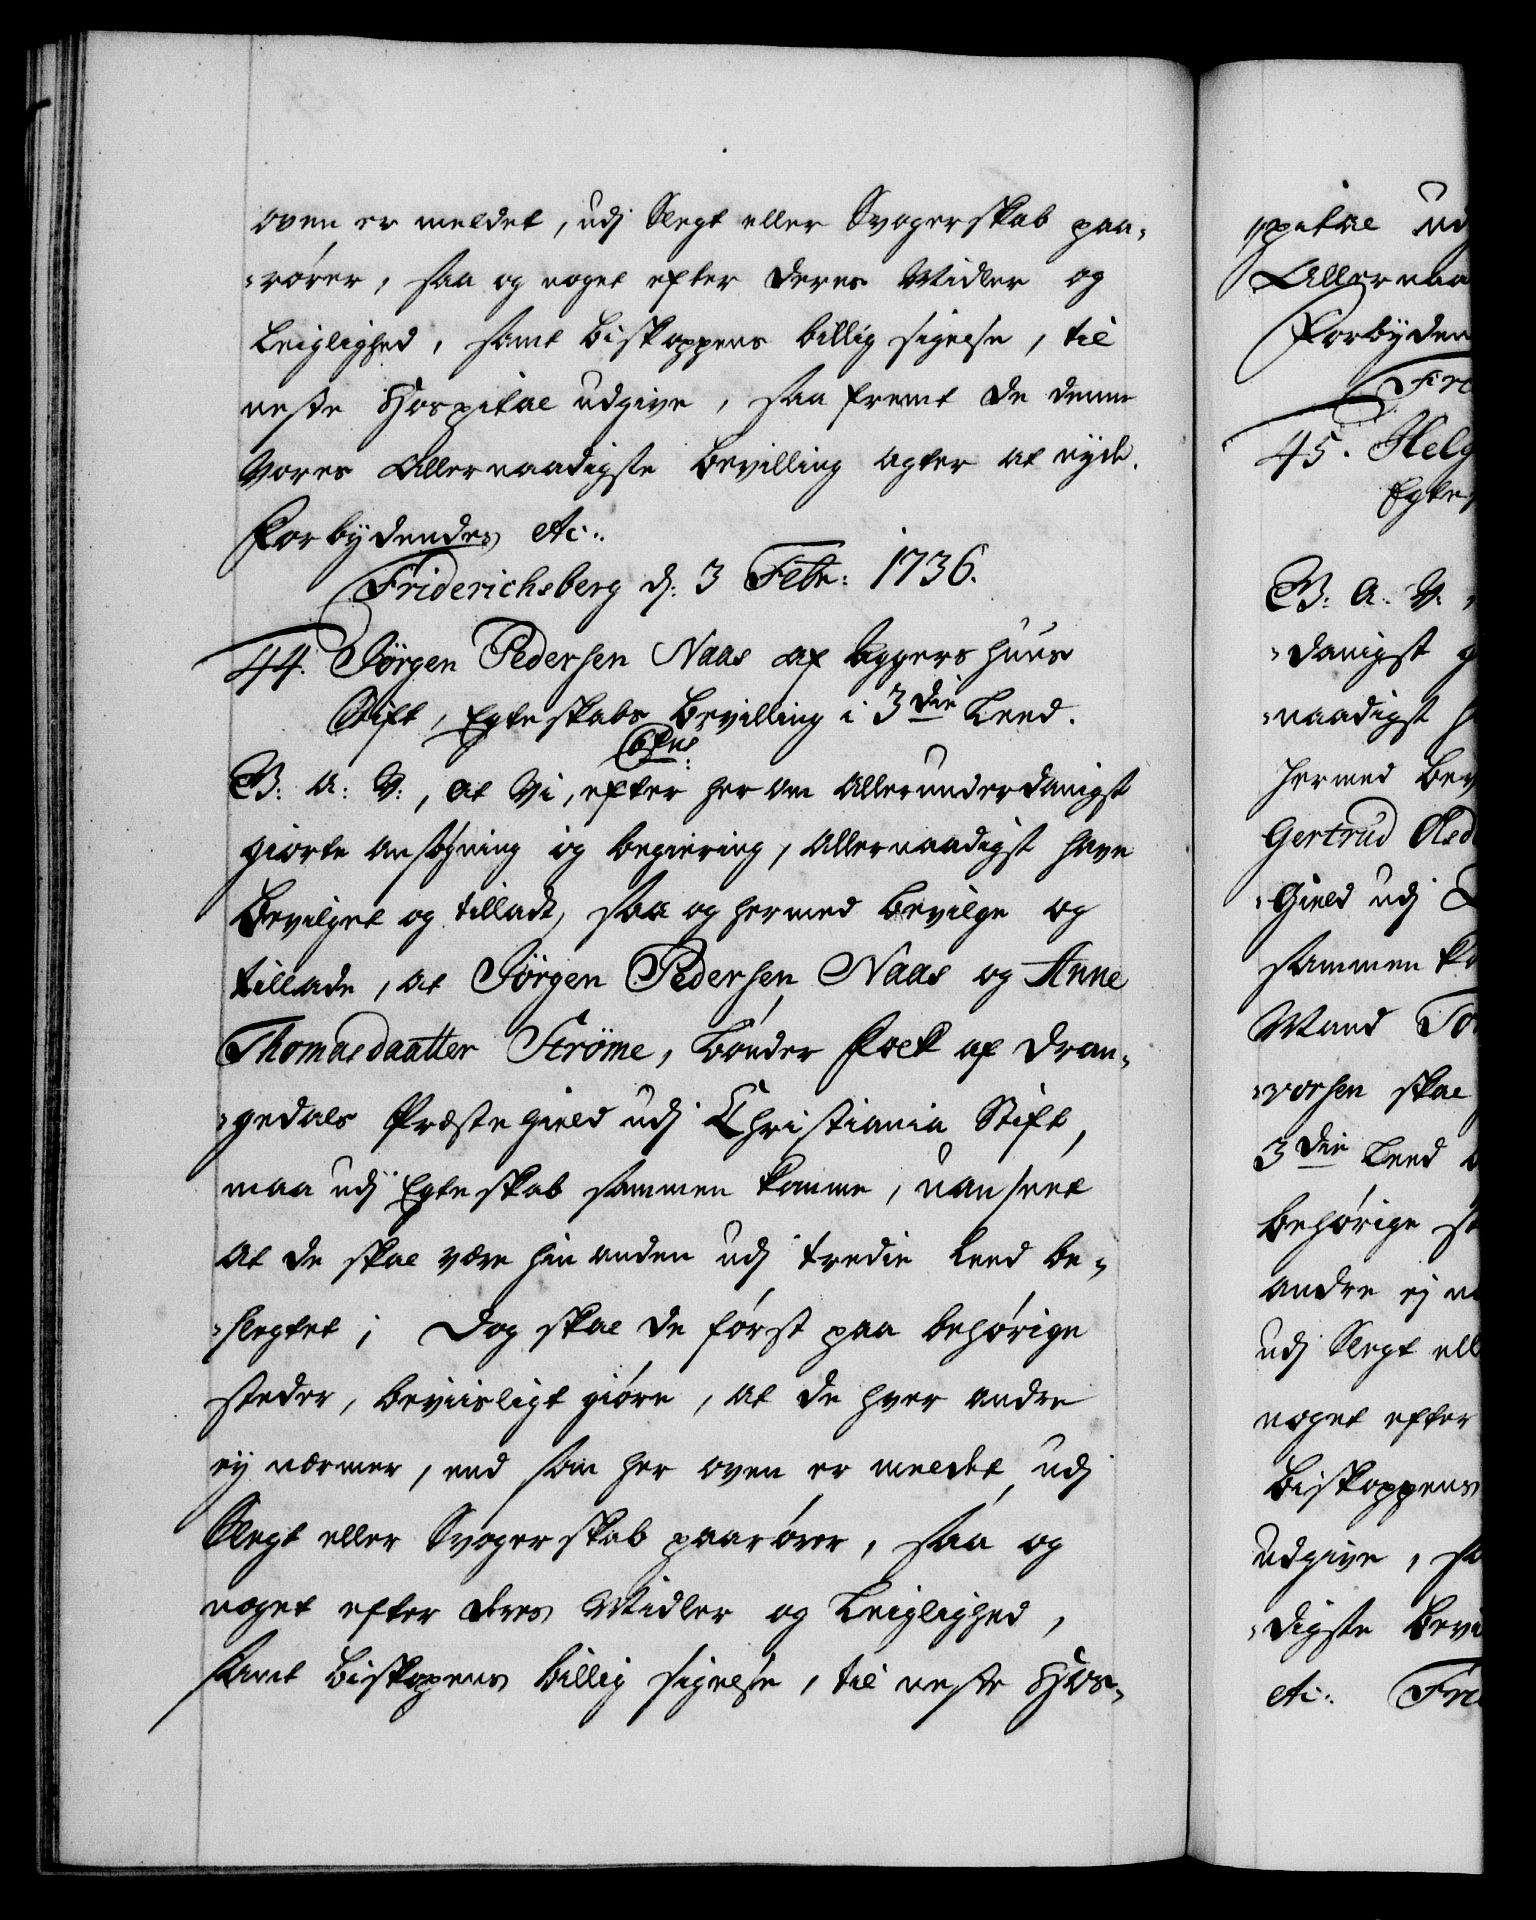 oven er meldet, udj Slegt eller Svogerskab paa-
-rører, saa og noget efter deres Midler og
Leiglighed, samt Biskoppens billig sigelse, til
neste Hospital udgive, saa fremt de denne
Vores Allernaadigste Bevilling agter at nyde.
Forbydendes etc:
Friderichsberg d: 3 Febr: 1736.
44. Jørgen Pedersen Naas af Aggershuus
Stift, Egteskabs Bevilling i 3die Leed.
V: A: V:, at Vi, efter her om allerunderdanigst
giorte ansøgning og begiering, allernaadigst have
Bevilget og tilladt, saa og hermed bevilge og
tillade, at Jørgen Pedersen Naas og Anne
Thomasdaatter Strøme, bønder Folk af Dran-
-gedals Præstegield udj Christiania Stift,
maa udj Egteskab sammen komme, uanseet
at de skal være hin anden udj tredie Leed be-
-slegtet; Dog skal de først paa behørige
steder, beviisligt giøre, at de hver andre
ey nærmer, end som her oven er meldet, udj
Slegt eller Svogerskab paarører, saa og
noget efter deres Midler og Leiglighed,
samt Biskopens billig sigelse, til neste Hos-
-pital ud
Allernaa
Forbyden
Fri
45. Helg
Egte
V: A: V:
-danigst
-naadigst
hermed bev
Gertrud
-Gield udj
sammen ko
Mand
-vorsen skal
3die Leed
behørige st
andre ej
udj Slegt ell
noget efter
Biskoppens
udgive, sa
-digste Bevi
etc: Fri